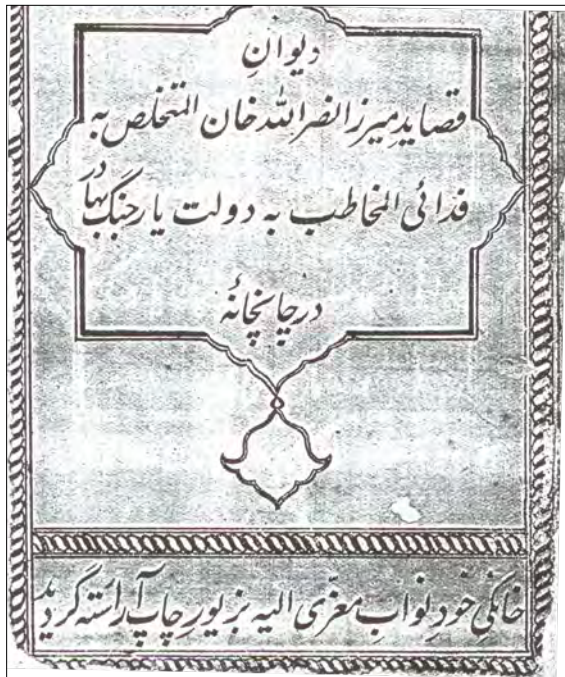 دیوانِ
قصایدِ میرزا نصر الله خان المتخلص به
فدائی المخاطب به دولت یار جنگ بهادر
در چاپخانهٔ
خانگی خودِ نوابِ معزّی الیه بزیورِ چاپ آراسته گردید